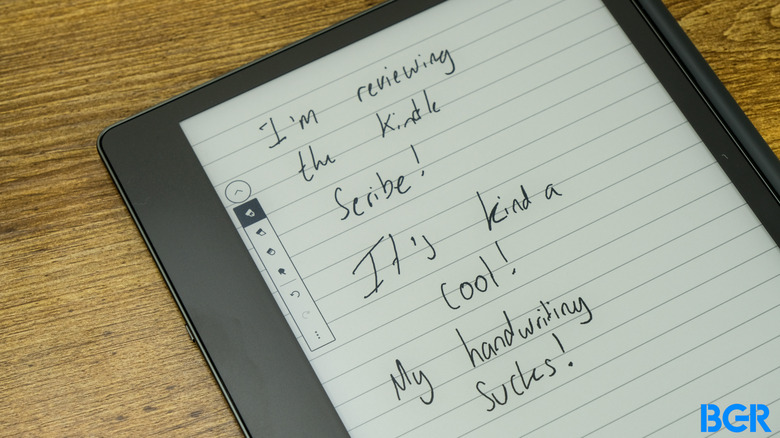 I'm reviewing
the Kindle
Scribe!
It's kinda
cool!
My handwriting
sucks!
BGR